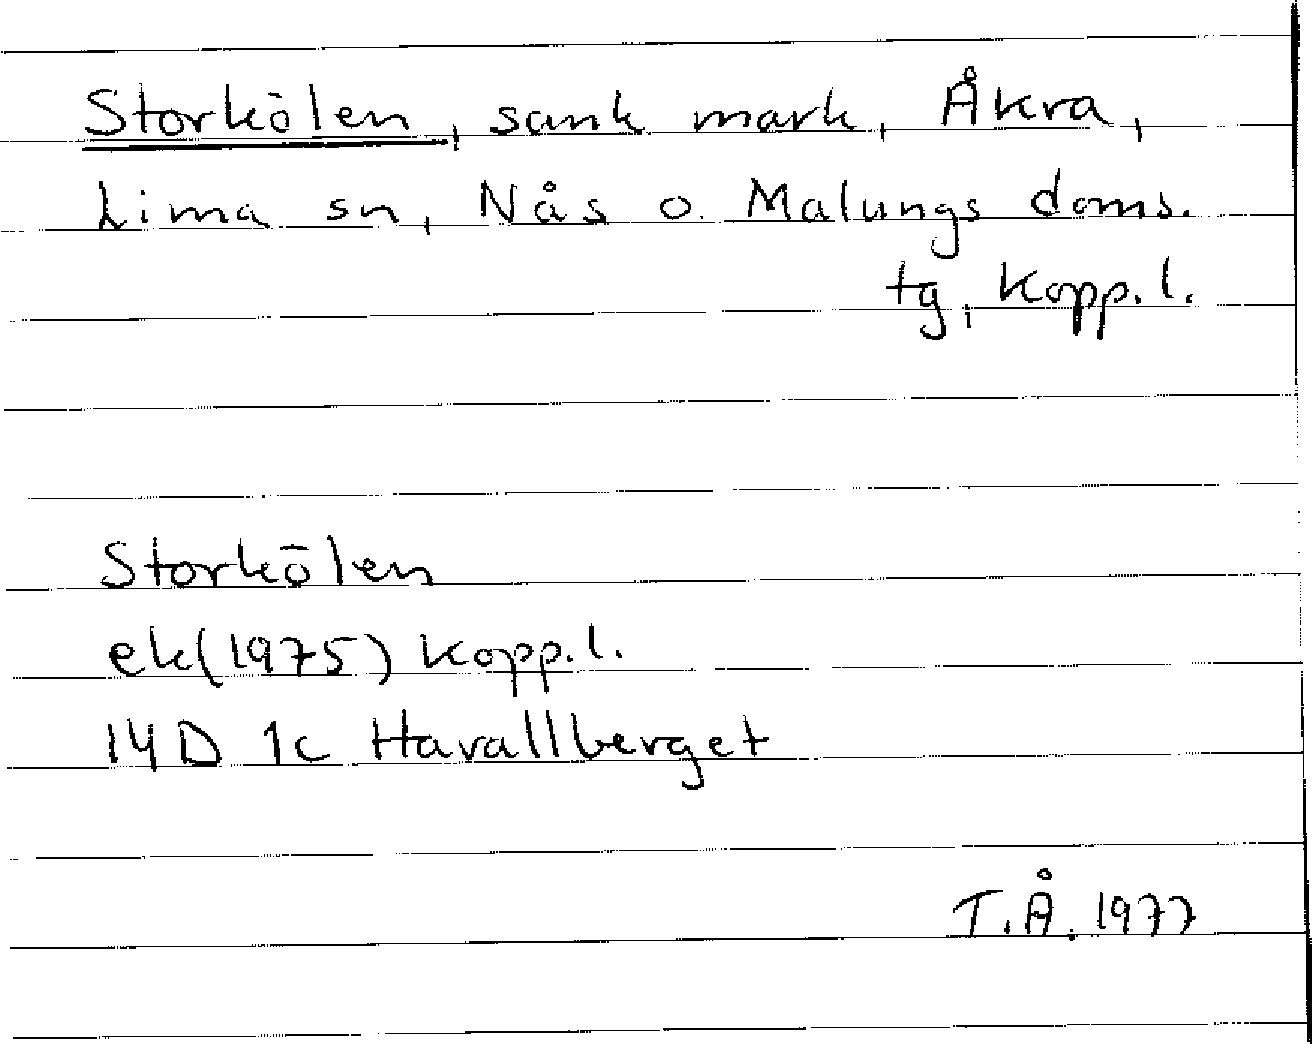 Storkölen, sank mark, Åkra,
Lima sn, Nås o. Malungs doms.
tg, Kopp. l.
Storkölen
ek(1975) Kopp. l.
14D 1c Havallberget
T.Å. 1977